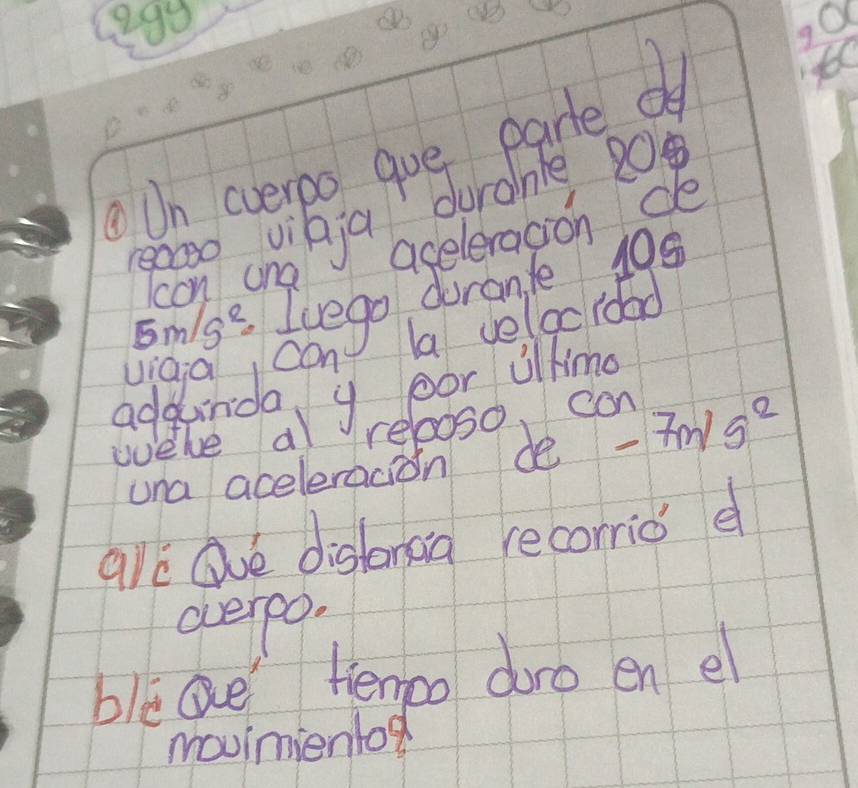 egy
① Un cuerpo que parte del
reposo viaja durante 20s
con una aceleración de
5m/s². Luego durante 10s
viaja con la velocidad
adquirida, y por último
vuelve al reposo, con
una aceleración de -7m/s²
a)¿ Qué distancia recorrió el
cuerpo.
b)¿ Que' tiempo duro en el
movimiento?